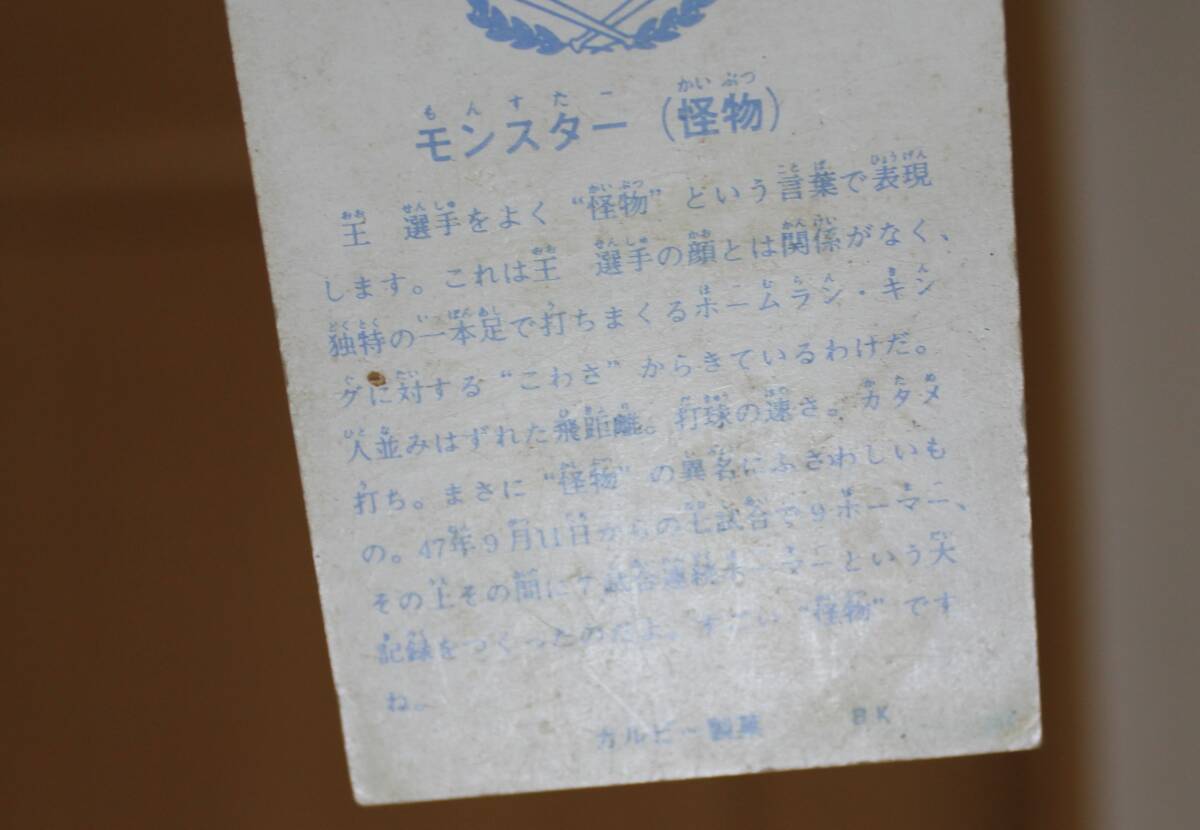 モンスター（怪物）
王　選手をよく“怪物”という言葉で表現
します。これは王　選手の顔とは関係がなく、
独特の一本足で打ちまくるホームラン・キン
グに対する“こわさ”からきているわけだ。
人並みはずれた飛距離。打球の速さ。カタメ
打ち。まさに“怪物”の異名にふさわしいも
の。47年9月11日からの七試合で9ホーマー、
その上その間に　試合連続ホーマーという大
記録をつくったのだよ。すごい“怪物”です
ね。
カルビー製菓　BK